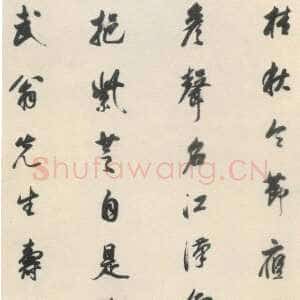 桂秋令節宿
彥聲名江潭
挹紫芝自是
武翁先生壽
Shufawang.CN